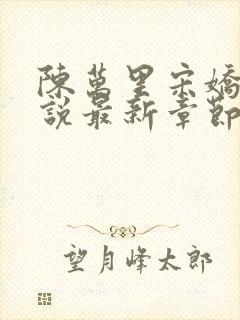 陳萬里宋嬌
說最新章節
望月峰太郎